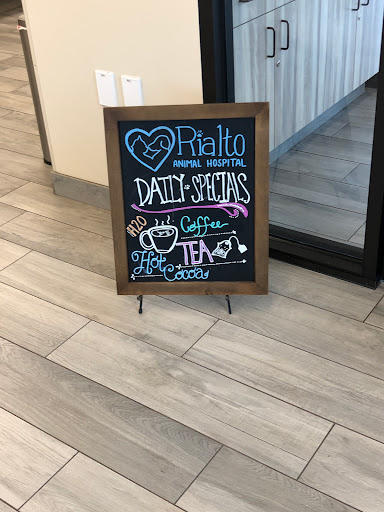 Rialto
ANIMAL HOSPITAL
DAILY SPECIALS
H2O
Coffee
TEA
Hot
Cocoa